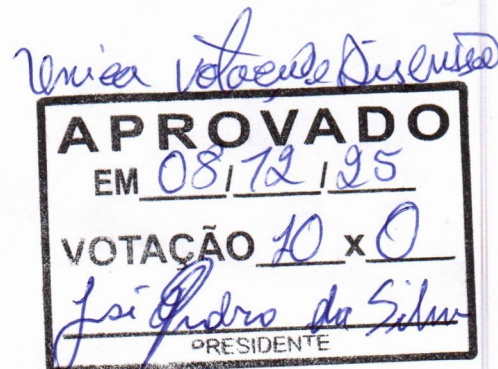 Unica Votação e Discussão
APROVADO
EM 08/12/25
VOTAÇÃO 10 x 0
José Pedro da Silva
PRESIDENTE